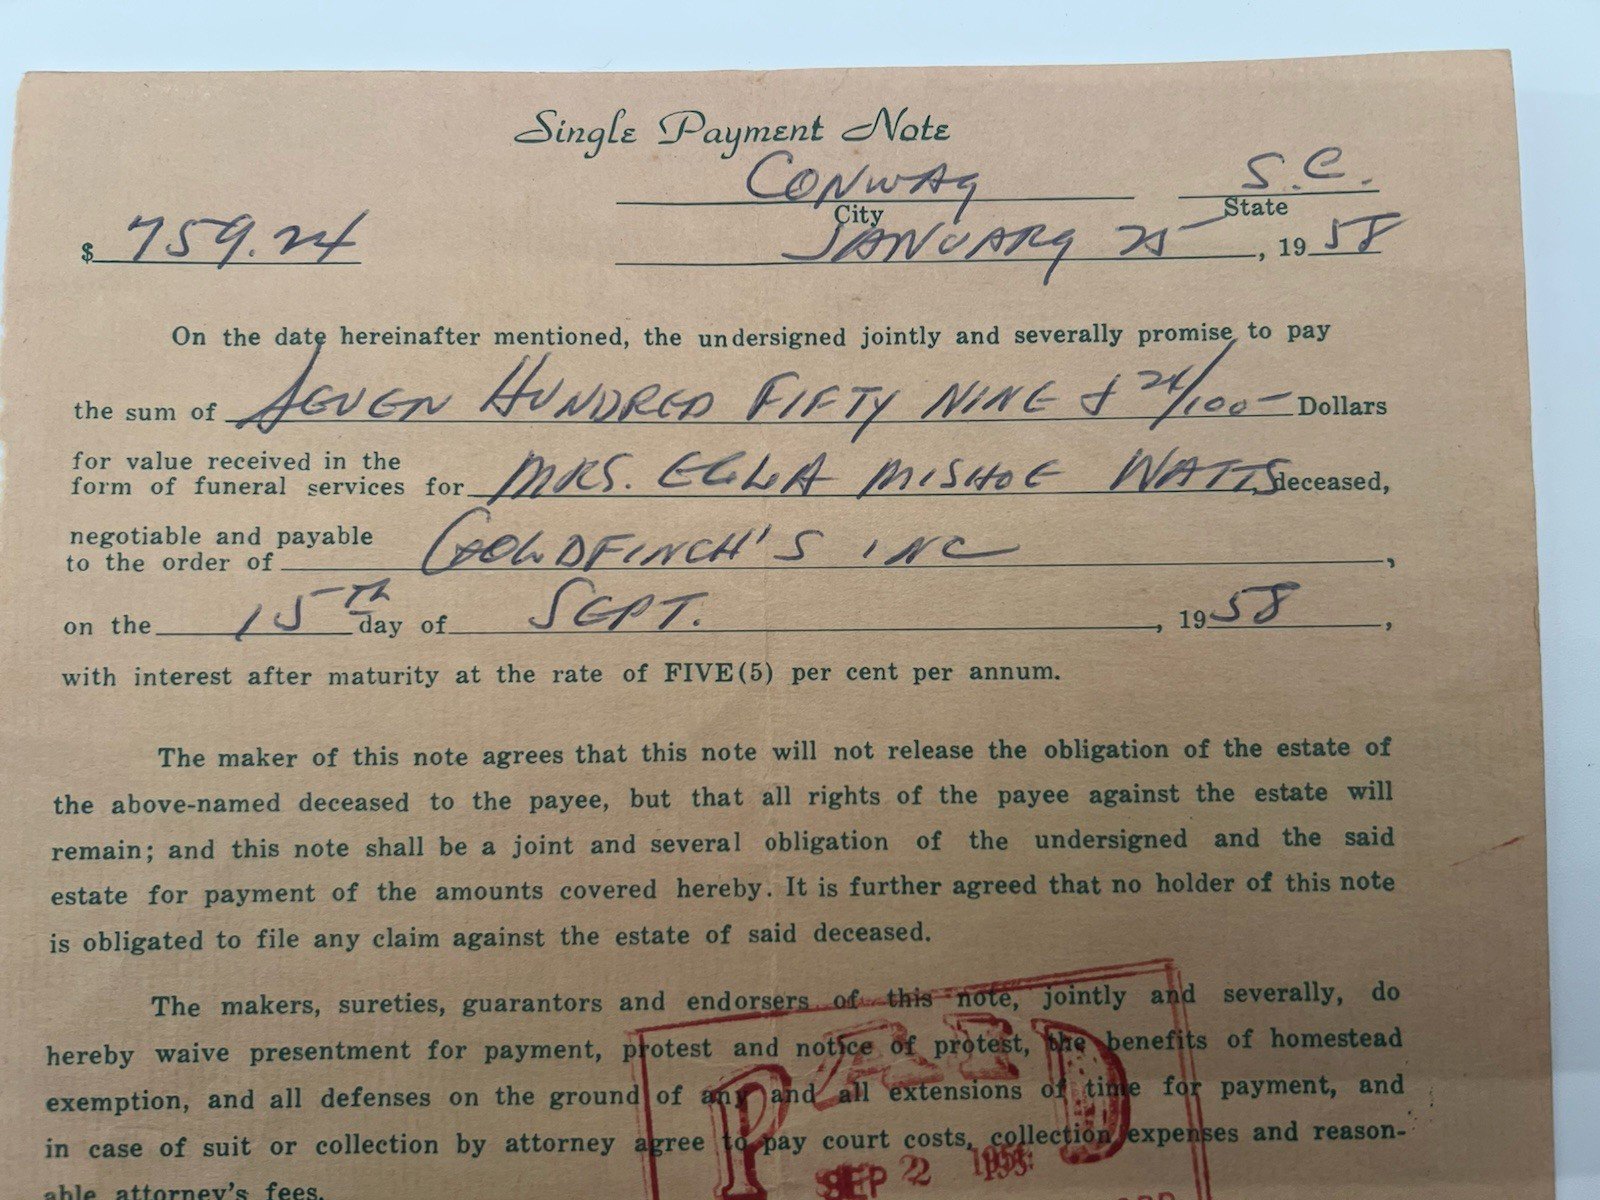 Single Payment Note
CONWAY S.C.
City State
$ 759.24 JANUARY 25, 1958
On the date hereinafter mentioned, the undersigned jointly and severally promise to pay
the sum of SEVEN HUNDRED FIFTY NINE & 24/100 Dollars
for value received in the
form of funeral services for MRS. ELLA MISHOE WATTS, deceased,
negotiable and payable
to the order of GOLDFINCH'S INC,
on the 15th day of SEPT., 1958,
with interest after maturity at the rate of FIVE(5) per cent per annum.
The maker of this note agrees that this note will not release the obligation of the estate of
the above-named deceased to the payee, but that all rights of the payee against the estate will
remain; and this note shall be a joint and several obligation of the undersigned and the said
estate for payment of the amounts covered hereby. It is further agreed that no holder of this note
is obligated to file any claim against the estate of said deceased.
The makers, sureties, guarantors and endorsers of this note, jointly and severally, do
hereby waive presentment for payment, protest and notice of protest, the benefits of homestead
exemption, and all defenses on the ground of any and all extensions of time for payment, and
in case of suit or collection by attorney agree to pay court costs, collection expenses and reason-
able attorney's fees.
PAID
SEP 22